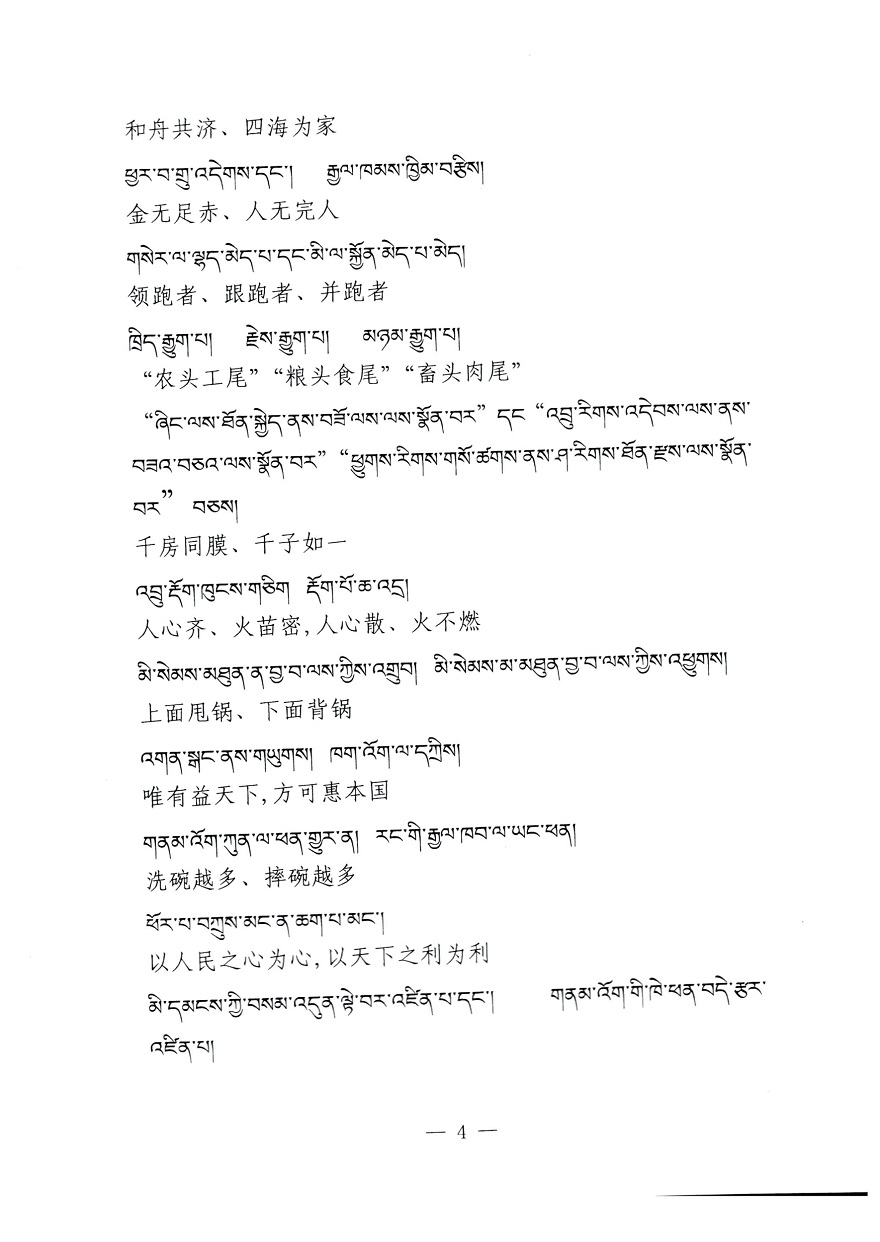 和舟共济、四海为家
ཕྱར་བ་གྲུ་འདེགས་དང་། རྒྱལ་ཁམས་ཁྱིམ་བརྩིས།
金无足赤、人无完人
གསེར་ལ་ལྷད་མེད་པ་དང་མི་ལ་སྐྱོན་མེད་པ་མེད།
领跑者、跟跑者、并跑者
ཁྲིད་རྒྱུག་པ། རྗེས་རྒྱུག་པ། མཉམ་རྒྱུག་པ།
“农头工尾”“粮头食尾”“畜头肉尾”
“ཞིང་ལས་ཐོན་སྐྱེད་ནས་བཟོ་ལས་ལས་སྣོན་བར” དང “འབྲུ་རིགས་འདེབས་ལས་ནས་
བཟའ་བཅའ་ལས་སྣོན་བར” “ཕྱུགས་རིགས་གསོ་ཚགས་ནས་ཤ་རིགས་ཐོན་རྫས་ལས་སྣོན་
བར” བཅས།
千房同膜、千子如一
འབྲུ་རྡོག་ཁུངས་གཅིག རྡོག་པོ་ཆ་འདྲ།
人心齐、火苗密,人心散、火不燃
མི་སེམས་མཐུན་ན་བྱ་བ་ལས་ཀྱིས་འགྲུབ། མི་སེམས་མ་མཐུན་བྱ་བ་ལས་ཀྱིས་འཕྱུགས།
上面甩锅、下面背锅
འགན་སྒང་ནས་གཡུགས། ཁག་འོག་ལ་དཀྲིས།
唯有益天下,方可惠本国
གནམ་འོག་ཀུན་ལ་ཕན་གྱུར་ན། རང་གི་རྒྱལ་ཁབ་ལ་ཡང་ཕན།
洗碗越多、摔碗越多
ཕོར་པ་བཀྲུས་མང་ན་ཆག་པ་མང་།
以人民之心为心,以天下之利为利
མི་དམངས་ཀྱི་བསམ་འདུན་ལྟེ་བར་འཛིན་པ་དང་། གནམ་འོག་གི་ཁེ་ཕན་བདེ་རྩར་
འཛིན་པ།
— 4 —